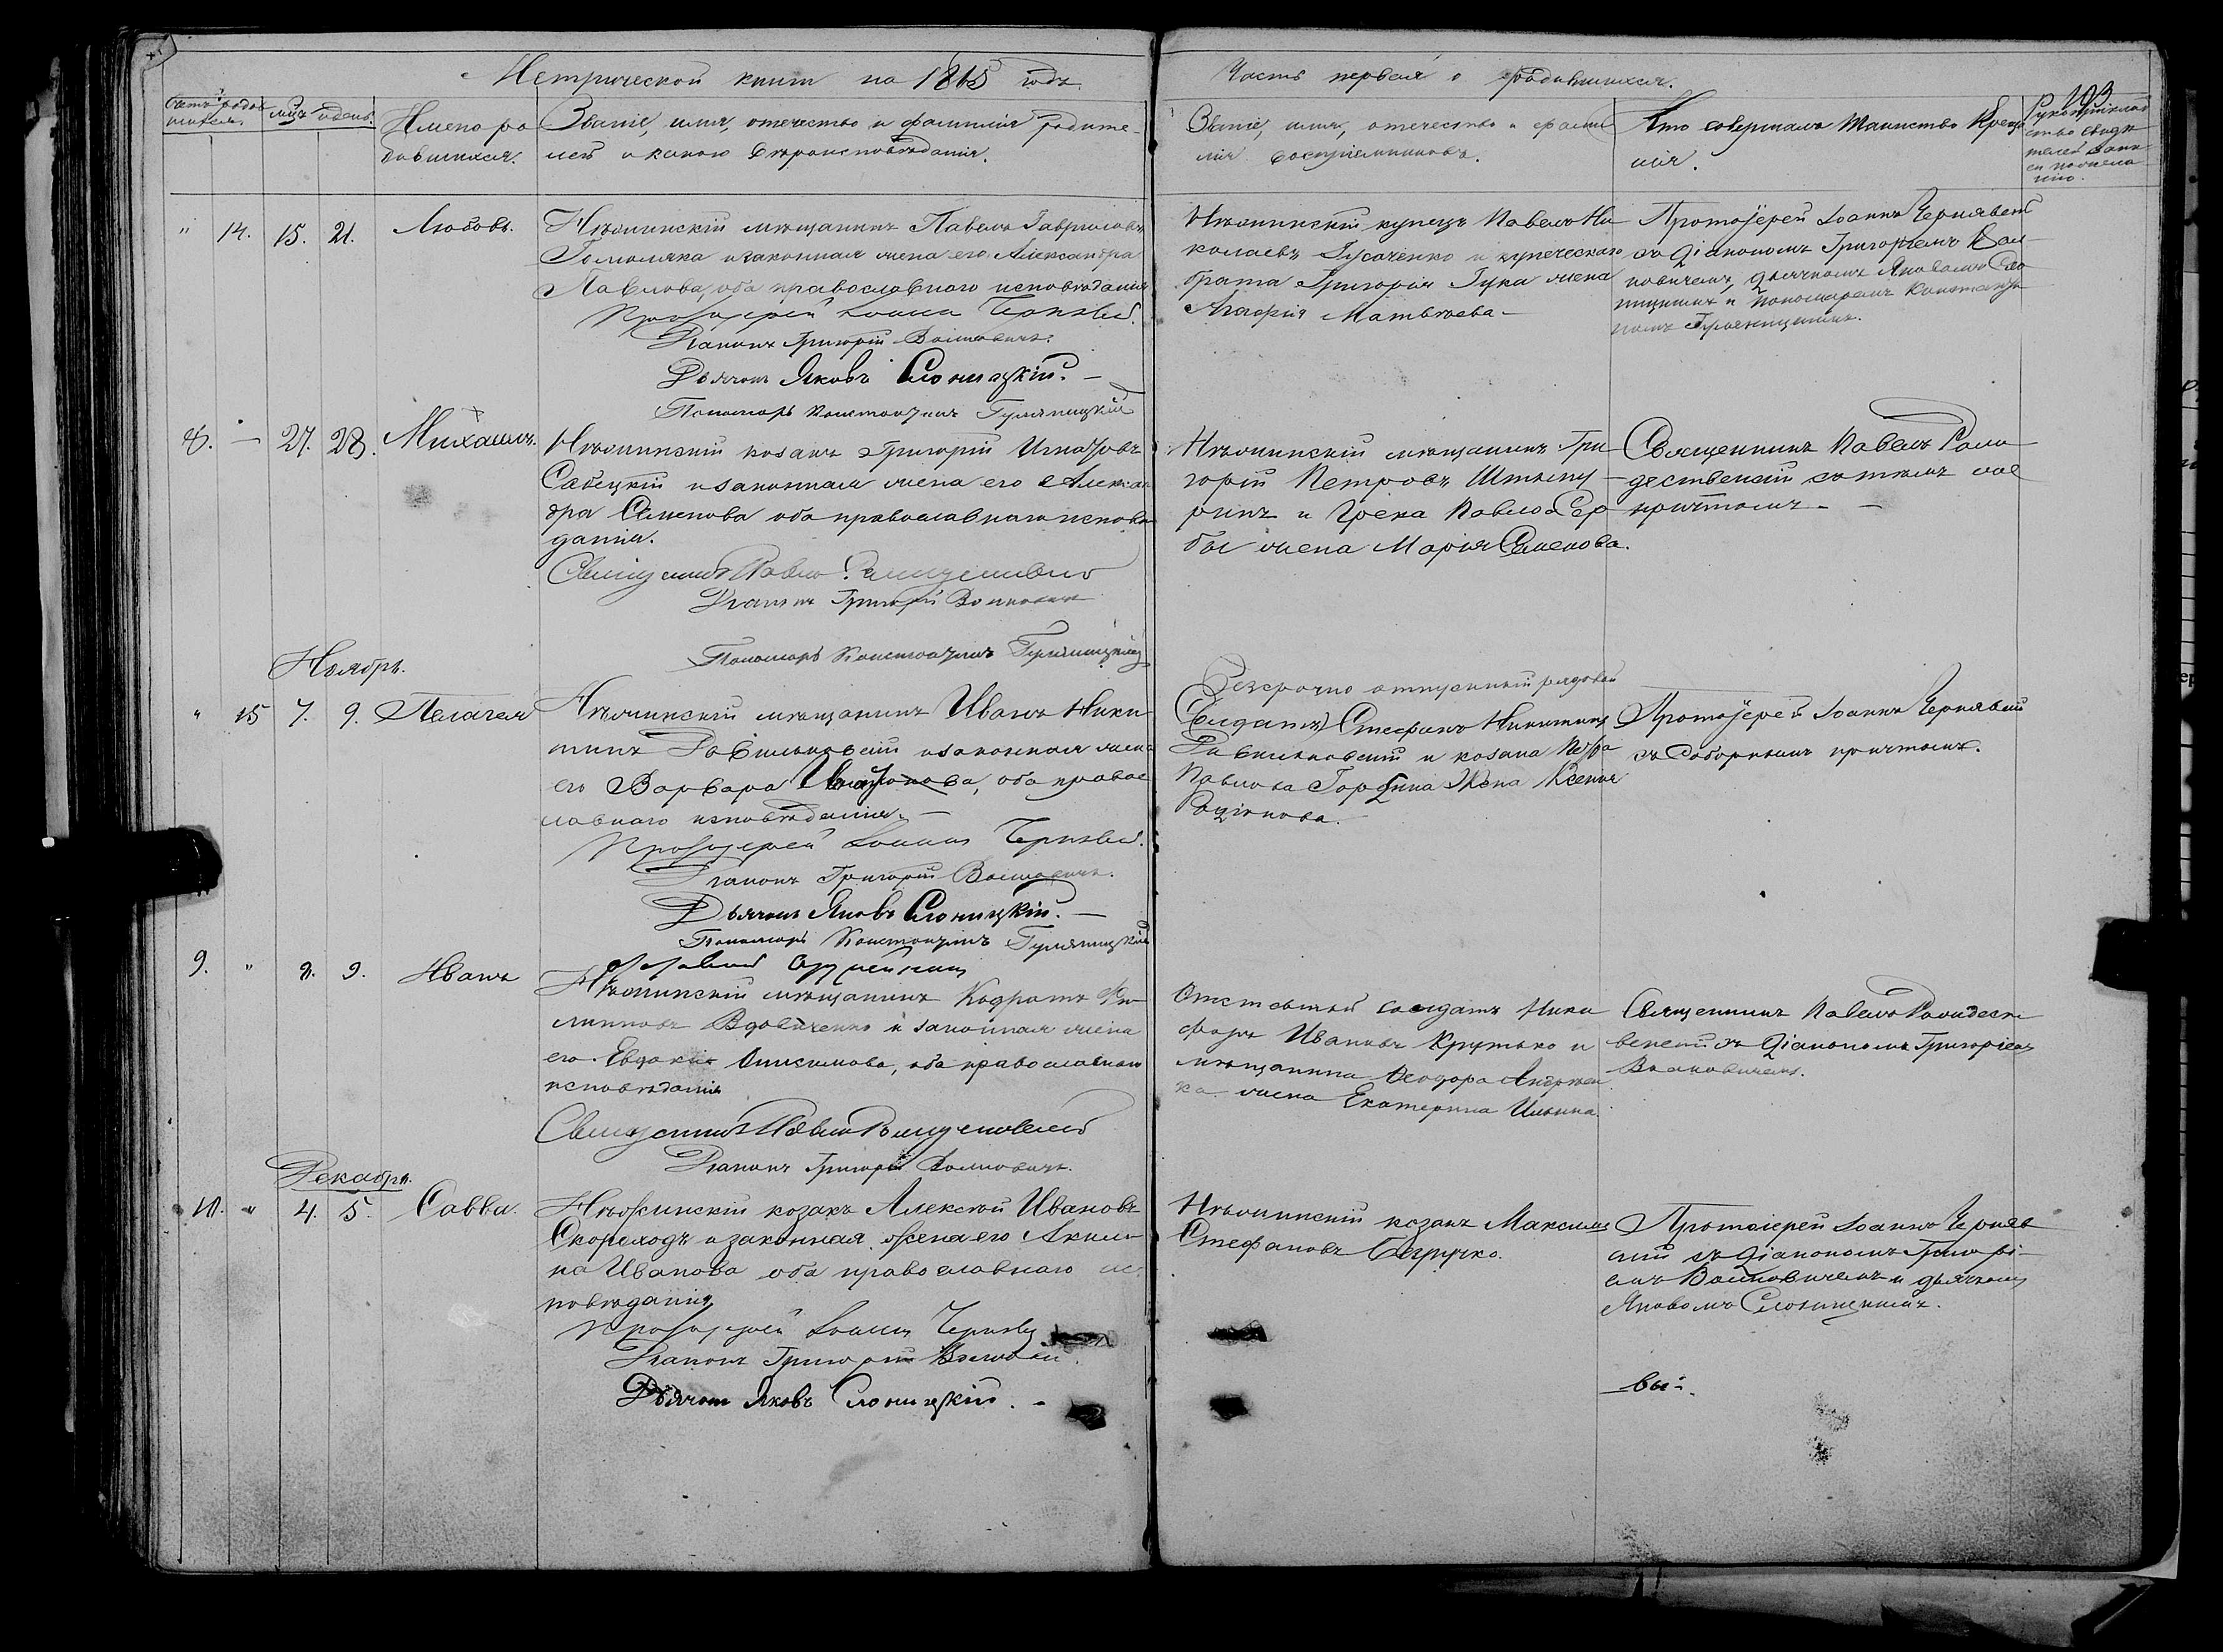 Метрической книги на 1865 годъ
Часть первая о родившихся.
103
Счетъ родившихся.
м-цъ и день.
Имена ро
дившихся.
Званіе, имя, отечество и фамилія родите-
лей и какого вѣроисповѣданія.
Званіе, имя, отечество и фами
лія воспріемниковъ.
Кто совершалъ таинство Креще
нія.
Рукоприклад
ство свидѣ
телей записи
по желанію.
" 14. 15. 21. Любовь.
Нѣжинскій мѣщанинъ Павелъ Гавриловъ
Гомоляка и законная жена его Александра
Павлова, оба православнаго исповѣданія
Протоіерей Іоаннъ Чернявскій.
Діаконъ Григорій Волковичъ.
Дьячокъ Яковъ Слоницкій. —
Пономарь Константинъ
Нѣжинскій купецъ Павелъ Ни
колаевъ Гусаченко и купеческаго
брата Григорія Гука жена
Матвѣева —
Протоіерей Іоаннъ Чернявскій
съ Діакономъ Григоріемъ Вол
ковичемъ, дьячкомъ Яковомъ Сло
ницкимъ и Пономаремъ Константи
номъ
8. — 27. 28. Михаилъ.
Нѣжинскій козакъ Григорій Игнатовъ
Савицкій и законная жена его Алексан
дра Семенова оба православнаго исповѣ
данія.
Священникъ Павелъ
Діаконъ Григорій Волковичъ
Пономарь Константинъ
Нѣжинскій мѣщанинъ Гри
горій Петровъ
и Грека Павла Сер
бы жена Марія Семенова.
Священникъ Павелъ Рож
дественскій съ тѣмъ же
причтомъ. —
Ноябрь.
" 15 7. 9. Пелагея
Нѣжинскій мѣщанинъ Иванъ Ники
тинъ и законная жена
его Варвара , оба правос
лавнаго исповѣданія. —
Протоіерей Іоаннъ Чернявскій.
Діаконъ Григорій Волковичъ.
Дьячокъ Яковъ Слоницкій. —
Пономарь Константинъ
Безсрочно отпускный рядовой
(Солдатъ) Стефанъ Никитинъ
и козака Петра
Павлова жена Ксенія
Родіонова.
Протоіерей Іоаннъ Чернявскій
съ Соборнымъ причтомъ.
9. " 8. 9. Иванъ
Нѣжинскій мѣщанинъ Кодратъ Фи
липповъ Вдовиченко и законная жена
его Евдокія Онисимова, оба православнаго
исповѣданія
Священникъ Павелъ Рождественскій
Діаконъ Григорій Волковичъ.
Отставный солдатъ Ники
форъ Ивановъ Крутько и
мѣщанина Ѳеодора Андреен
ка жена Екатерина Ильина.
Священникъ Павелъ Рождест
венскій съ Діакономъ Григоріемъ
Волковичемъ.
Декабрь.
10. " 4. 5. Савва.
Нѣжинскій козакъ Алексѣй Ивановъ
Скороходъ и законная жена его Акили
на Иванова оба православнаго ис
повѣданія
Протоіерей Іоаннъ Чернявскій
Діаконъ Григорій Волковичъ.
Дьячокъ Яковъ Слоницкій. —
Нѣжинскій козакъ Максимъ
Стефановъ
Протоіерей Іоаннъ Черняв
скій съ Діакономъ Григорі
емъ Волковичемъ и дьячкомъ
Яковомъ Слоницкимъ.